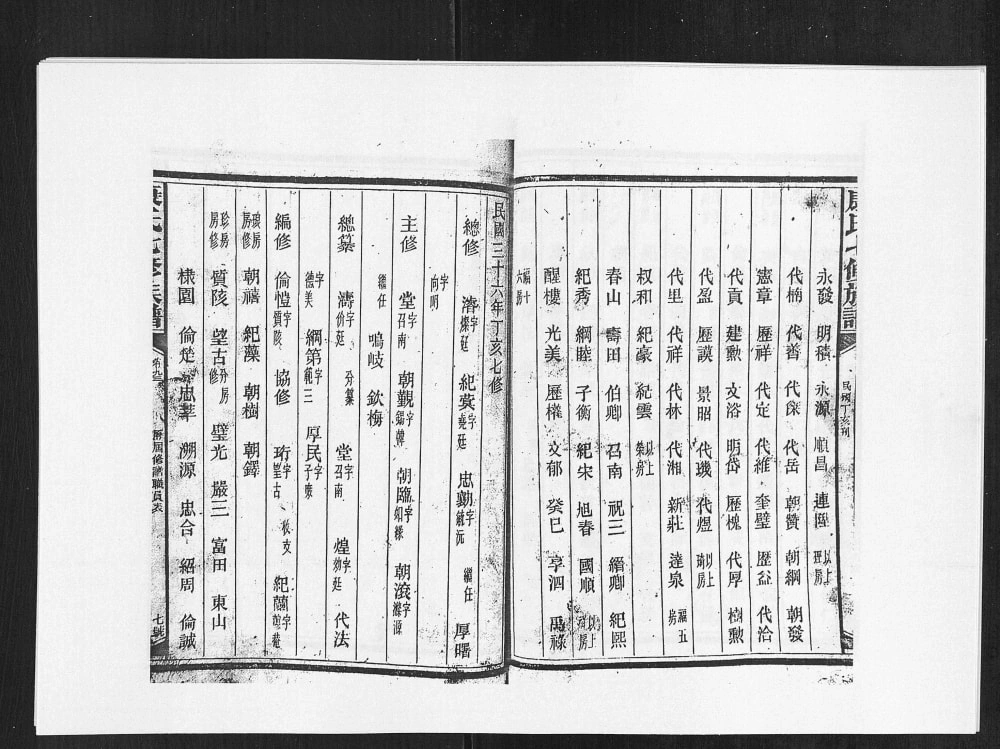 氏七修族譜
民國丁亥刊
永發 明積 永源 順昌 連陞 以上珵房
代柟 代善 代琛 代岳 朝贊 朝綱 朝發
憲章 歷祥 代定 代維 奎璧 歷益 代洽
代貢 建勲 文浴 明岱 歷槐 代厚 樹勲
代盈 歷謨 景昭 代璣 代煜 以上琦房
代里 代祥 代林 代湘 新莊 達泉 福五房
叔和 紀豪 紀雲 以上房
春山 壽田 伯卿 召南 祝三 縉卿 紀熙
紀秀 綱睦 子衡 紀宋 旭春 國順 以上房
醒樓 光美 歷權 文郁 癸巳 享泗 禹祿
福十六房
民國三十六年丁亥七修
總修 濬字燦廷 紀冀字堯廷 忠勷字毓沅 繼任 厚曙
字向明
主修 堂字召南 朝覲字錫韓 朝臨字如緣 朝滾字濰源
繼任 鳴岐 欽梅
總纂 濤字份廷 分纂 堂字召南 煌字幼廷 代法
字德美 綱第字範三 厚民字子康
編修 倫愷字質陔 協修 珩字望古 收支 紀蘭字蘭菴
琅房房修 朝禧 紀藻 朝樹 朝鐸
珍房房修 質陔 望古 分房修 璧光 嚴三 富田 東山
棣園 倫楚 忠莘 溯源 忠合 紹周 倫誠
氏七修族譜
八 歷屆修譜職員表
七號